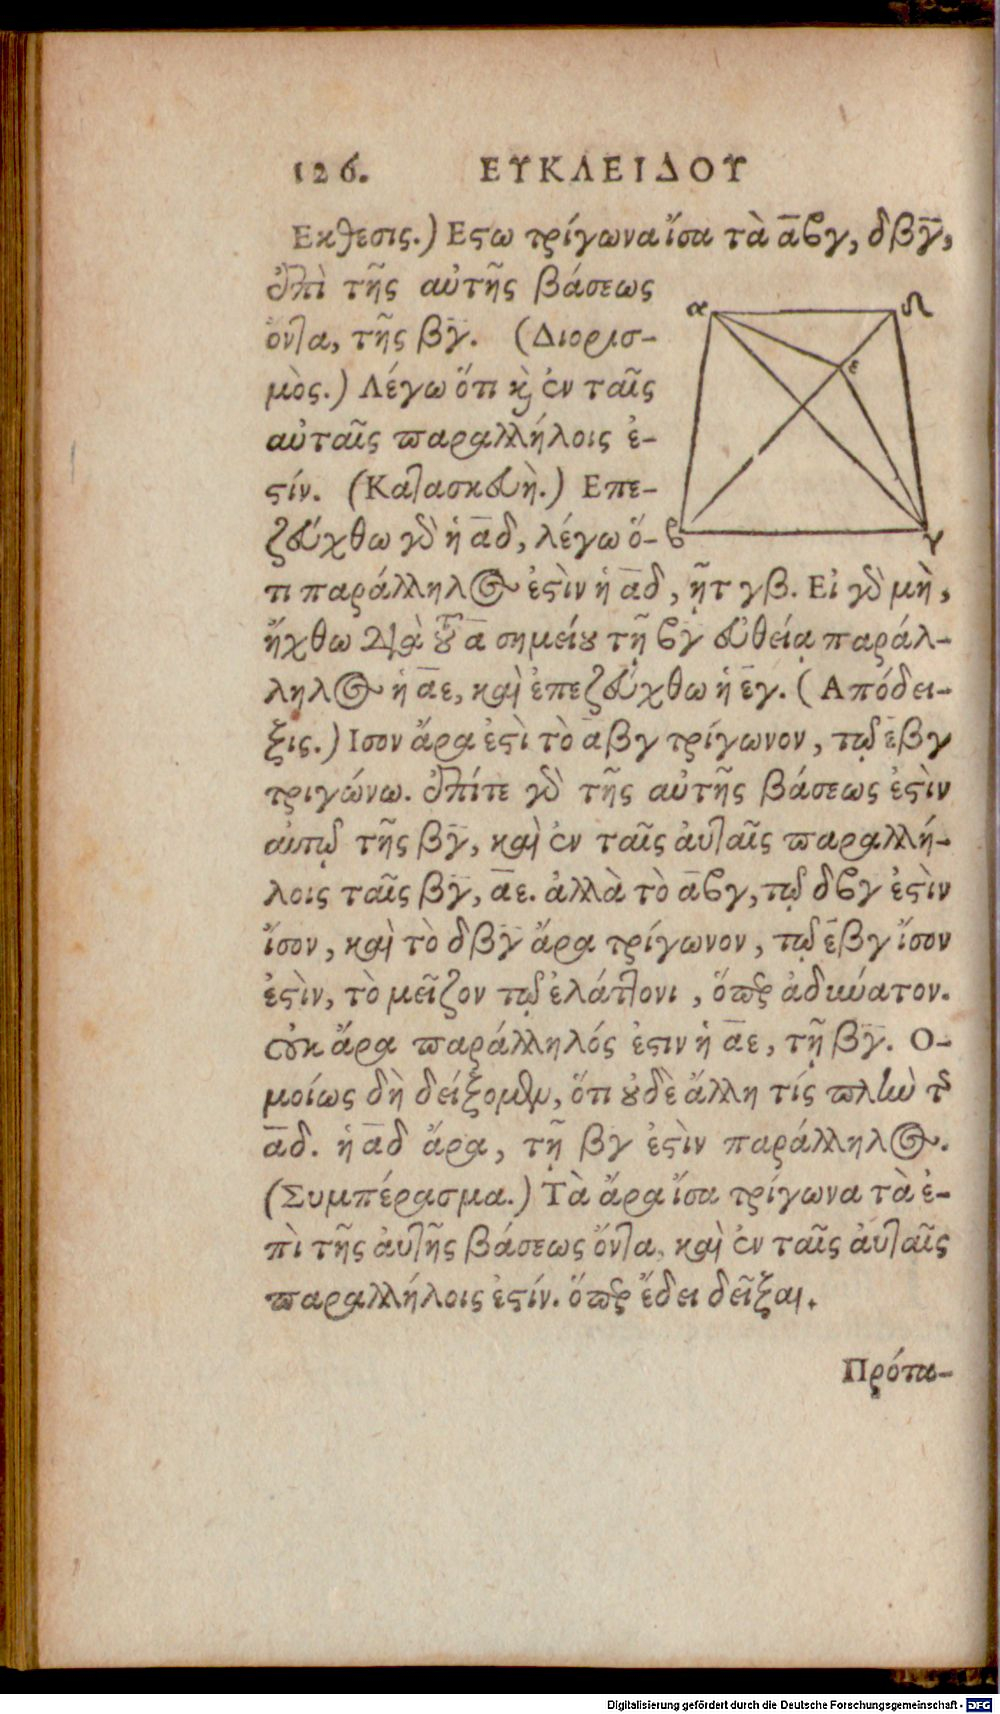 126. ΕΥΚΛΕΙΔΟΥ
Εκθεσις.) Εϛω τρίγωνα ἴσα τὰ α̅ϐγ, δβγ̅,
ἐπὶ τῆς αὐτῆς βάσεως
ὄντα, τῆς βγ̅. (Διορισ-
μὸς.) Λέγω ὅτι κ̀ ἐν ταῖς
αὐταῖς παραλλήλοις ἐ-
ϛίν. (Κατασκευὴ.) Επε-
ζεύχθω γὸ ἡ α̅δ, λέγω ὅ-
τι παράλληλος ἐϛὶν ἡ α̅δ, τῇ γβ. Εἰ γὸ μὴ,
ἤχθω διὰ τȣ͂ α̅ σημείȣ τῇ ϐγ̅ εὐθείᾳ παράλ-
ληλος ἡ α̅ε, καὶ ἐπεζεύχθω ἡ ε̅γ. (Απόδει-
ξις.) Ισον ἄρα ἐϛὶ τὸ α̅βγ τρίγωνον, τῷ ε̅βγ
τριγώνω. ἐπίτε γὸ τῆς αὐτῆς βάσεως ἐϛὶν
αὐτῷ τῆς βγ̅, καὶ ἐν ταῖς ἀυταῖς παραλλή-
λοις ταῖς βγ̅, α̅ε. ἀλλὰ τὸ α̅ϐγ, τῷ δϐγ ἐϛὶν
ἴσον, καὶ τὸ δβγ̅ ἄρα τρίγωνον, τῷ ε̅βγ ἴσον
ἐϛὶν, τὸ μεῖζον τῷ ἐλάττονι, ὅπερ ἀδύνατον.
οὐκ ἄρα παράλληλός ἐϛιν ἡ α̅ε, τῇ βγ̅. Ο-
μοίως δὴ δείξομεν, ὅτι ȣ̓δὲ ἄλλη τίς πλὴν τ͂
α̅δ. ἡ α̅δ ἄρα, τῇ βγ ἐϛὶν παράλληλος.
(Συμπέρασμα.) Τὰ ἄρα ἴσα τρίγωνα τὰ ἐ-
πὶ τῆς ἀυτῆς βάσεως ὄντα, καὶ ἐν ταῖς ἀυταῖς
παραλλήλοις ἐϛίν. ὅπερ ἔδει δεῖξαι.
Πρότα-
α
δ
ε
ϐ
γ
Digitalisierung gefördert durch die Deutsche Forschungsgemeinschaft - DFG